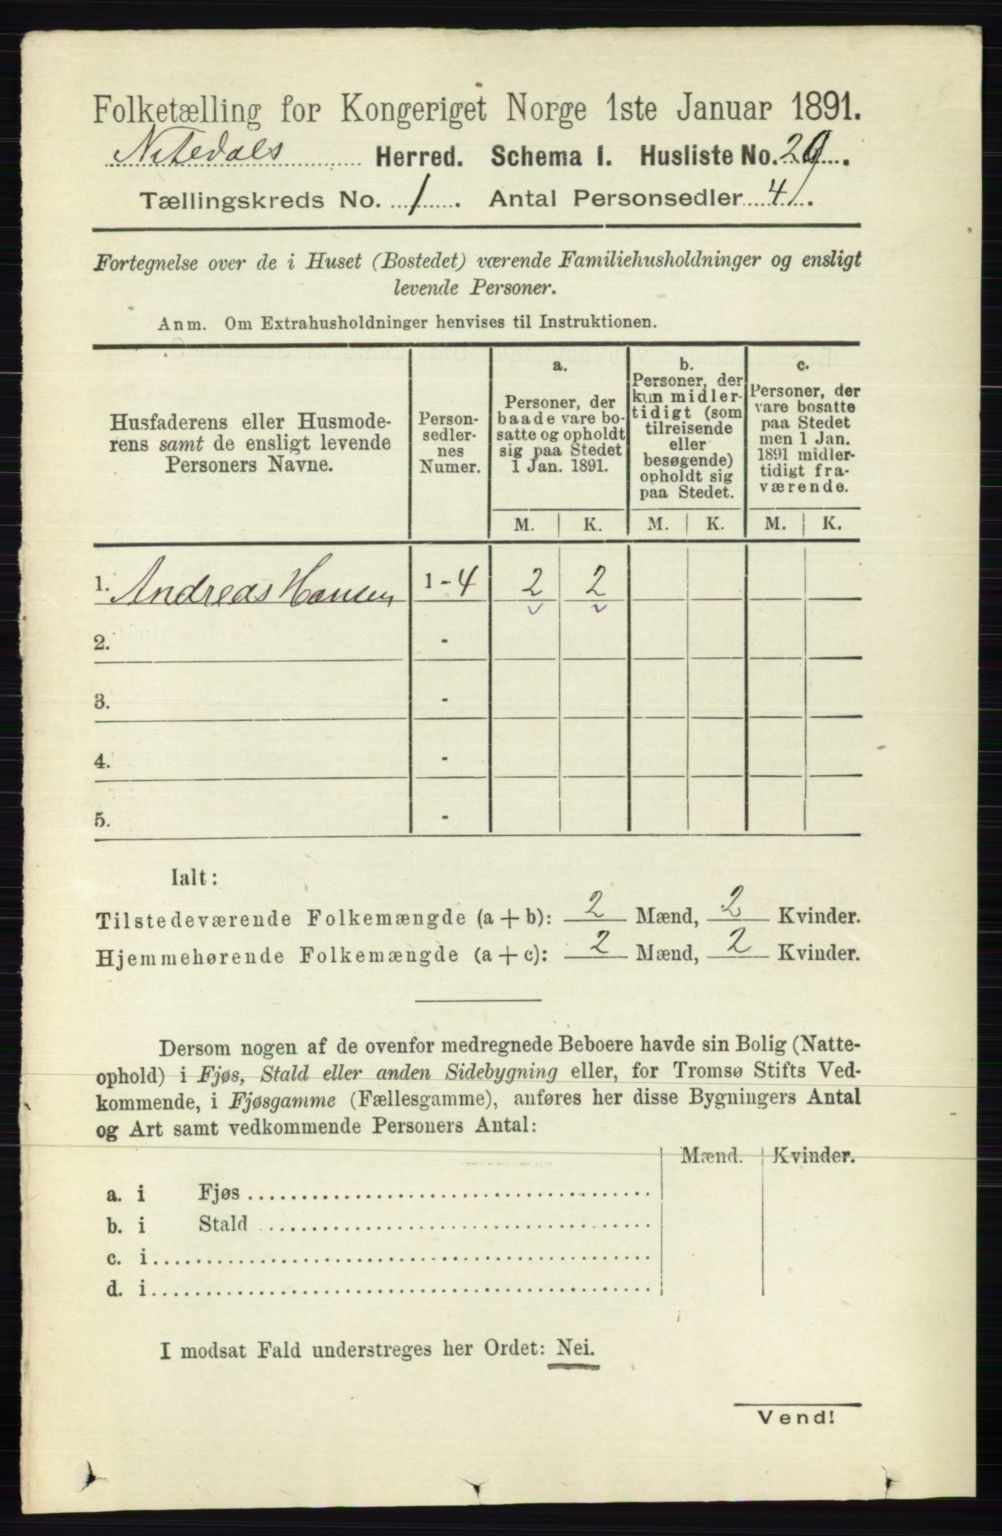 Folketælling for Kongeriget Norge 1ste Januar 1891.
Nitedals Herred. Schema I. Husliste No. 29.
Tællingskreds No. 1. Antal Personsedler 4.
Fortegnelse over de i Huset (Bostedet) værende Familiehusholdninger og ensligt
levende Personer.
Anm. Om Extrahusholdninger henvises til Instruktionen.
Husfaderens eller Husmode-
rens samt de ensligt levende
Personers Navne.
Person-
sedler-
nes
Numer.
a.
Personer, der
baade vare bo-
satte og opholdt
sig paa Stedet
1 Jan. 1891.
b.
Personer, der
kun midler-
tidigt (som
tilreisende
eller
besøgende)
opholdt sig
paa Stedet.
c.
Personer, der
vare bosatte
paa Stedet
men 1 Jan.
1891 midler-
tidigt fra-
værende.
M. K. M. K. M. K.
1. Andreas Hansen 1-4 2 2
2. -
3. -
4. -
5. -
Ialt:
Tilstedeværende Folkemængde (a+b): 2 Mænd, 2 Kvinder.
Hjemmehørende Folkemængde (a+c): 2 Mænd, 2 Kvinder.
Dersom nogen af de ovenfor medregnede Beboere havde sin Bolig (Natte-
ophold) i Fjøs, Stald eller anden Sidebygning eller, for Tromsø Stifts Ved-
kommende, i Fjøsgamme (Fællesgamme), anføres her disse Bygningers Antal
og Art samt vedkommende Personers Antal:
Mænd. Kvinder.
a. i Fjøs
b. i Stald
c. i
d. i
I modsat Fald understreges her Ordet: Nei.
Vend!